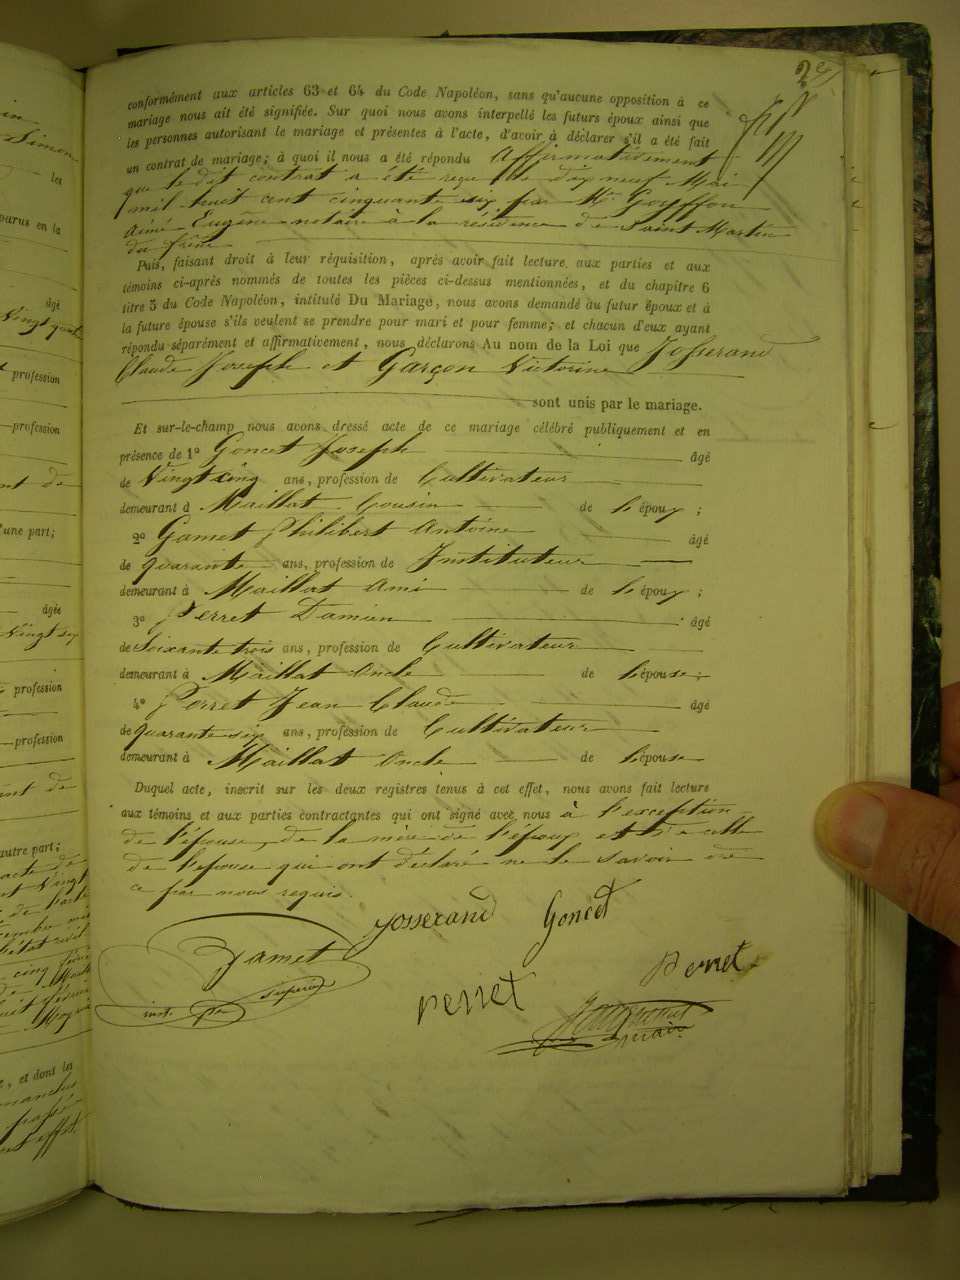 2e
conformément aux articles 63 et 64 du Code Napoléon, sans qu'aucune opposition à ce
mariage nous ait été signifiée. Sur quoi nous avons interpellé les futurs époux ainsi que
les personnes autorisant le mariage et présentes à l'acte, d'avoir à déclarer s'il a été fait
un contrat de mariage; à quoi il nous a été répondu Affirmativement
que le dit contrat a été reçu le dix neuf Mai
mil huit cent cinquante six par Me Goyffon
Aimé Eugène notaire à la résidence de Saint Martin
du frêne
Puis, faisant droit à leur réquisition, après avoir fait lecture aux parties et aux
témoins ci-après nommés de toutes les pièces ci-dessus mentionnées, et du chapitre 6
titre 5 du Code Napoléon, intitulé Du Mariage, nous avons demandé au futur époux et à
la future épouse s'ils veulent se prendre pour mari et pour femme; et chacun d'eux ayant
répondu séparément et affirmativement, nous déclarons Au nom de la Loi que Josserand
Claude Joseph et Garçon Victorine
sont unis par le mariage.
Et sur-le-champ nous avons dressé acte de ce mariage célébré publiquement et en
présence de 1o Goncet Joseph âgé
de Vingt cinq ans, profession de Cultivateur
demeurant à Maillat Cousin de l'époux;
2o Gamet Philibert Antoine âgé
de quarante ans, profession de Instituteur
demeurant à Maillat Ami de l'époux;
3o Perret Damien âgé
de Soixante trois ans, profession de Cultivateur
demeurant à Maillat Oncle de l'épouse;
4o Perret Jean Claude âgé
de quarante six ans, profession de Cultivateur
demeurant à Maillat Oncle de l'épouse
Duquel acte, inscrit sur les deux registres tenus à cet effet, nous avons fait lecture
aux témoins et aux parties contractantes qui ont signé avec nous à l'exception
de l'épouse, de la mère de l'époux et de celle
de l'épouse qui ont déclaré ne le savoir de
ce par nous requis.
Josserand Goncet
Gamet
Perret
perret